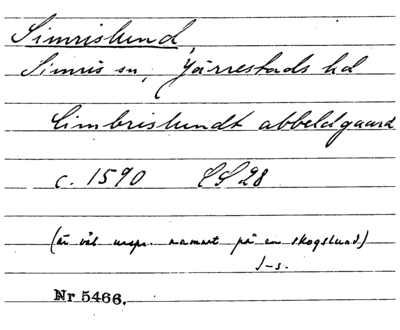 Simrislund,
Simris sn, Järrestads hd
Cimbrislundt abbeldgaard
c. 1590 LS 28
(är väl urspr. namnet på en skogslund.)
J-s.
Nr 5466.